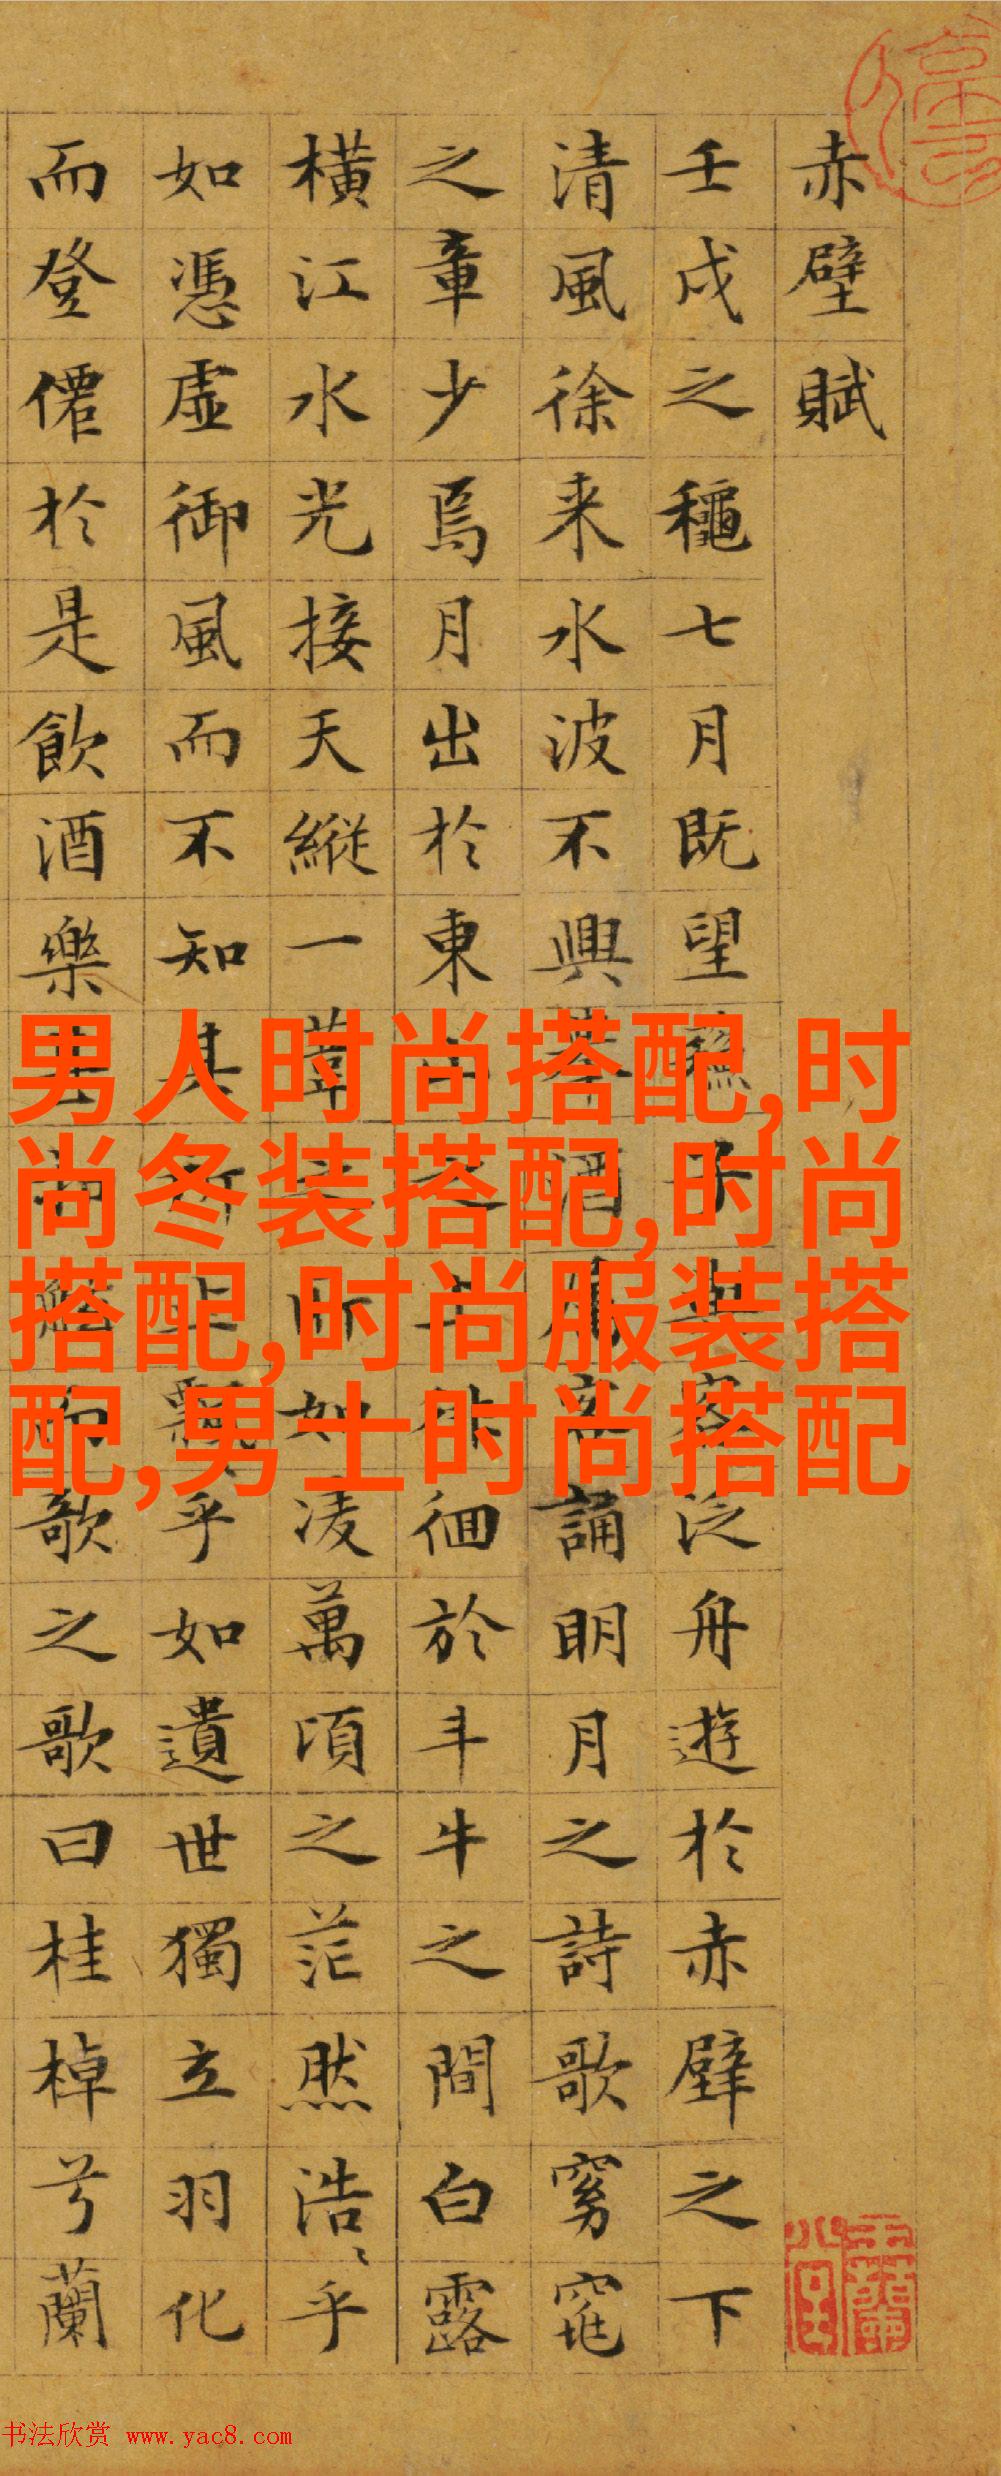 赤壁賦
壬戌之穐七月既望蘓子與客泛舟遊於赤壁之下
清風徐来水波不興舉酒屬客誦明月之詩歌窈窕
之章少焉月出於東山之上徘徊於斗牛之間白露
橫江水光接天縱一葦之所如凌萬頃之茫然浩〻乎
如憑虛御風而不知其所止飄〻乎如遺世獨立羽化
而登僊於是飲酒樂甚扣舷而歌之歌曰桂棹兮蘭
男人时尚搭配,时
尚冬装搭配,时尚
搭配,时尚服装搭
配,男士时尚搭配
书法欣赏 www.yac8.com